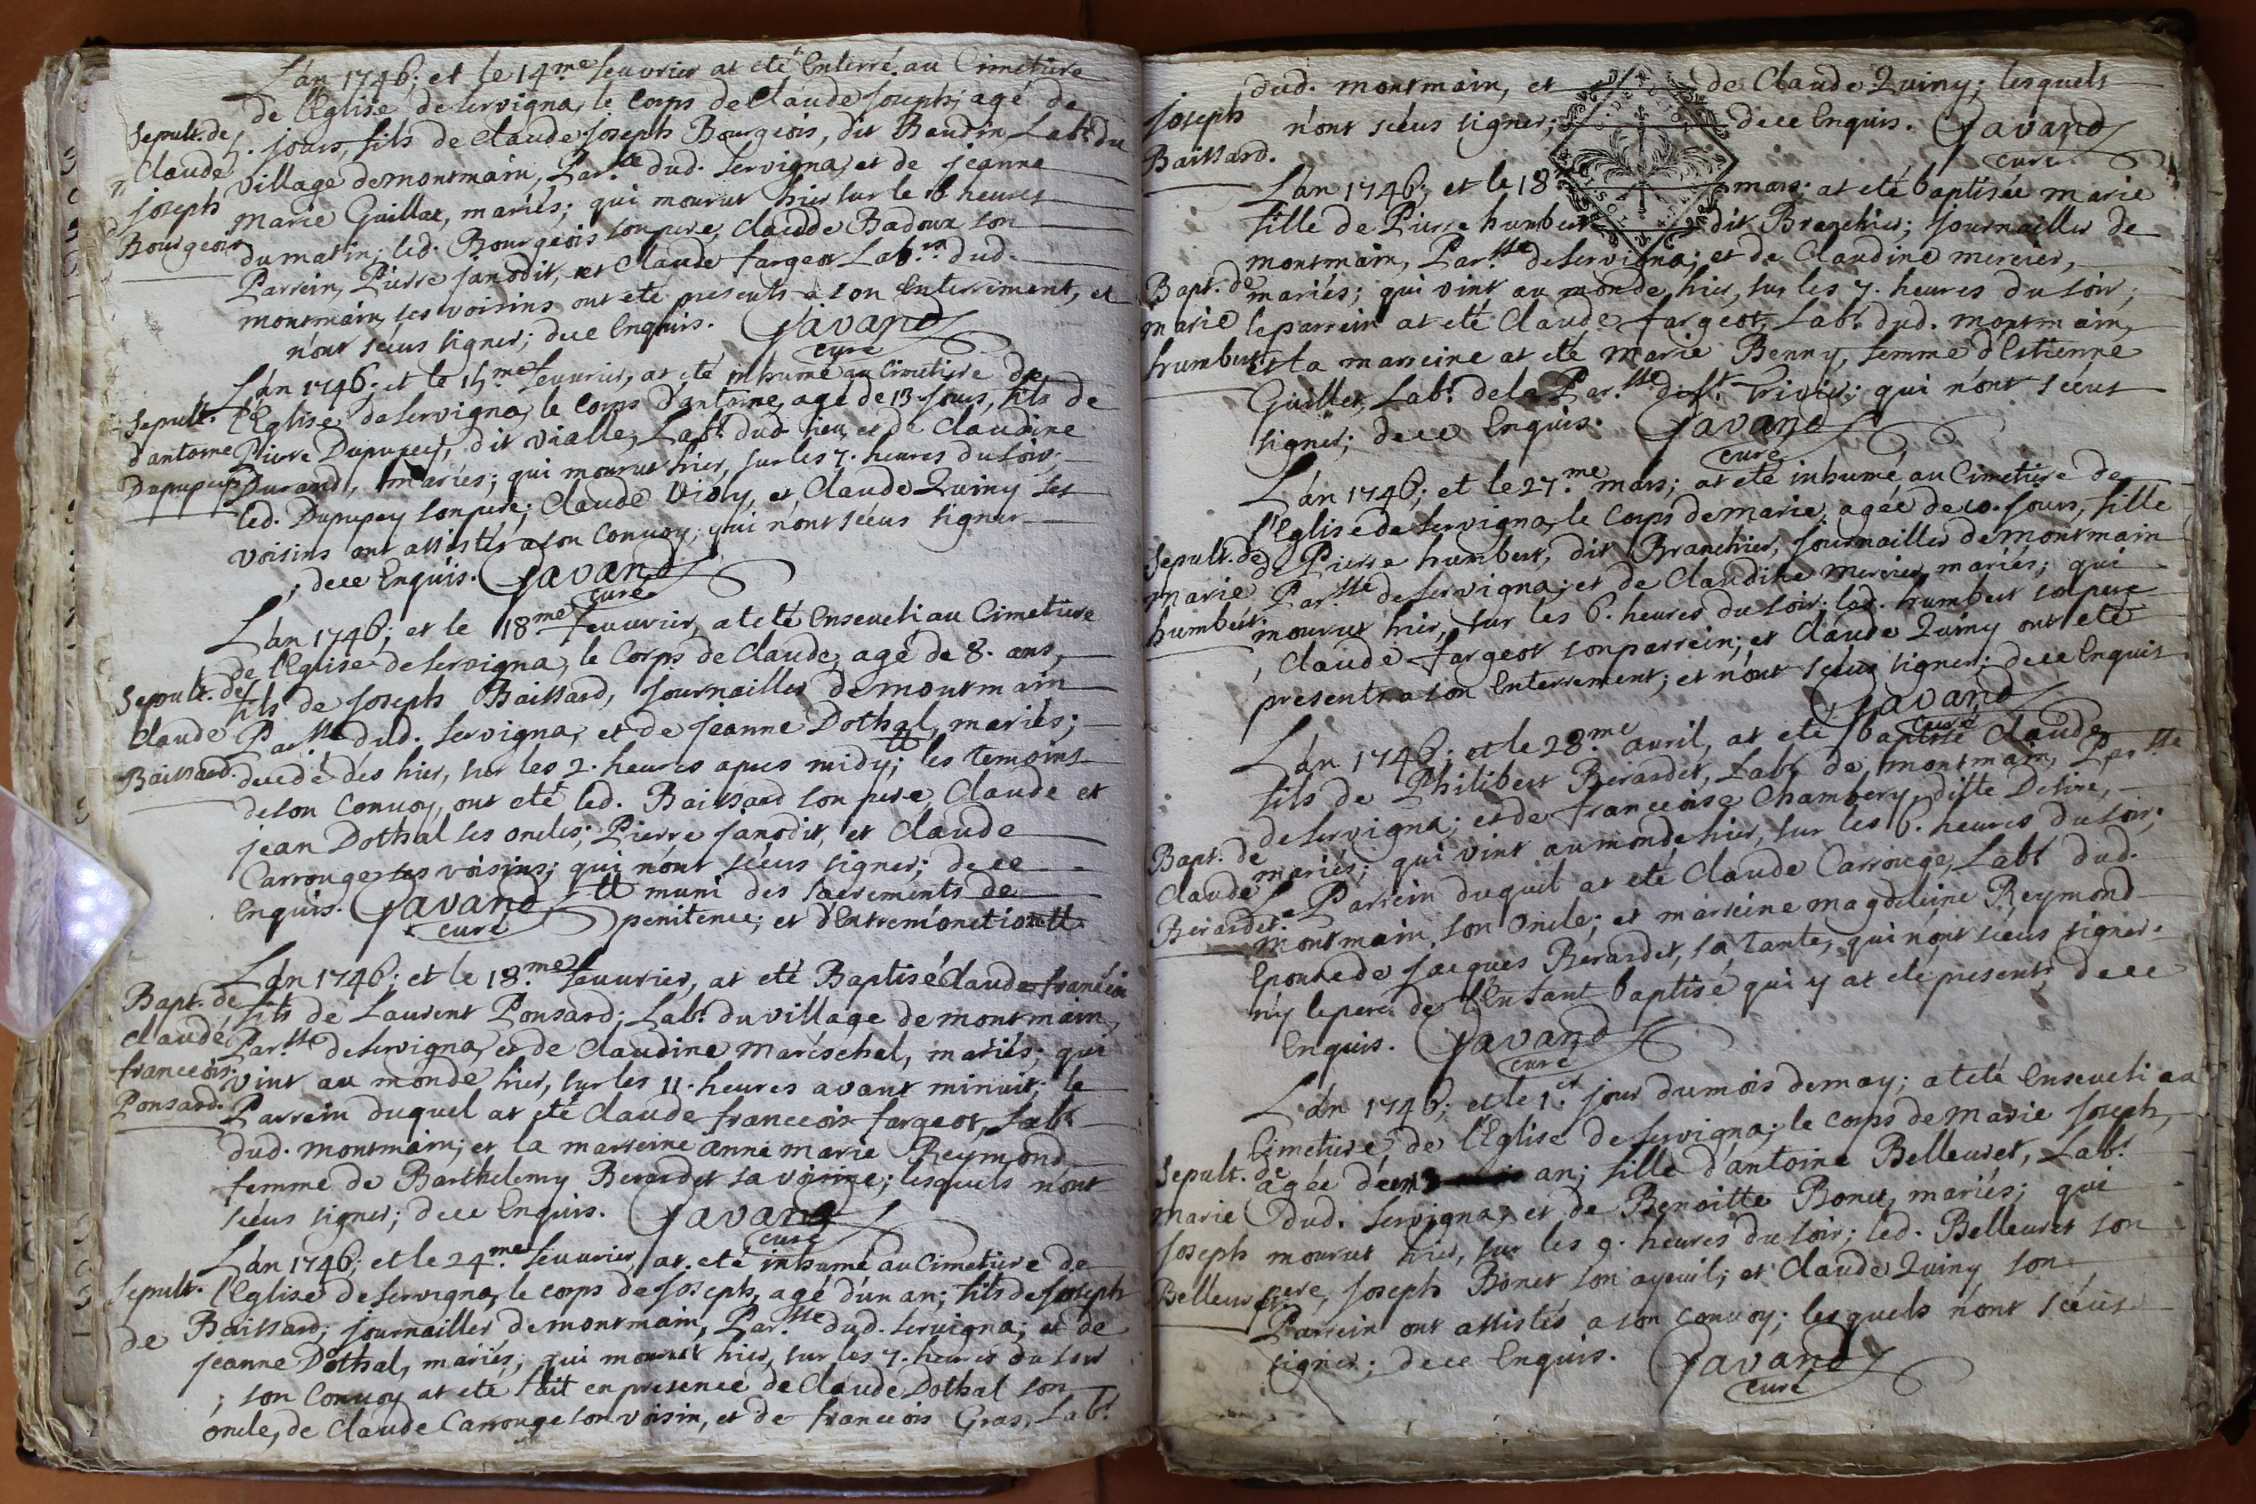 L'an 1746; et le 14.me feuvrier at eté enterré au Cimetiere
de l'Eglise de servigna, le corps de Claude Joseph, agé de
Sepult. de
Claude
Joseph
Bourgeois
5. jours, fils de Claude Joseph Bourgeois, dit Baudin, Labr. du
village de montmain, Par.sse dud. servigna, et de jeanne
marie Guillat, mariés; qui mourut hier sur le 8 heures
du matin; led. Bourgeois son pere, Claude Badoux son
Parrein, Pierre janodit, et Claude fargeot Lab.rs dud.
montmain, ses voisins ont eté presents a son enterrement, et
n'ont sceus signer; de ce enquis. Javand
curé
L'an 1746; et le 15.me feuvrier, at eté inhumé au Cimetiere de
Sepult.
d'antoine
Dupupey
l'Eglise de servigna, le corps d'antoine, agé de 13 jours, fils de
Pierre Dupupey, dit vialle, Labr. dud. lieu, et de Claudine
Durand, mariés; qui mourut hier, sur les 7. heures du soir;
led. Dupupey son pere; Claude Violy, et Claude Quiny ses
voisins ont assistés a son convoy; qui n'ont sceus signer
; de ce enquis. Javand
curé
L'an 1746; et le 18.me feuvrier, at eté enseveli au Cimetiere
de l'Eglise de servigna, le corps de Claude, agé de 8. ans,
Sepult. de
Claude
Baissard.
fils de Joseph Baissard, journallier de montmain
Par.sse dud. servigna, et de jeanne Dothal, mariés;
decedé dés hier, sur les 2. heures apres midy; les temoins
de son convoy, ont eté led. Baissard son pere, Claude et
jean Dothal ses oncles; Pierre janodit, et Claude
Carrouge ses voisins; qui n'ont sceus signer; de ce
enquis. Javand muni des sacrements de
curé penitence; et d'Extremonction
L'an 1746; et le 18.me feuvrier, at eté Baptisé Claude francois
Bapt. de
Claude
francois
Ponsard.
fils de Laurent Ponsard; Labr. du village de montmain,
Par.sse de servigna, et de Claudine mareschal, mariés; qui
vint au monde hier, sur les 11. heures avant minuit; le
Parrein duquel at eté Claude francois fargeot, Labr.
dud. montmain; et la marreine anne marie Reymond
femme de Barthelemy Berardet sa voisine; lesquels n'ont
sceus signer; de ce enquis. Javand
curé
L'an 1746; et le 24.me feuvrier, at eté inhumé au Cimetiere de
Sepult.
de
l'Eglise de servigna, le corps de Joseph, agé d'un an; fils de Joseph
Baissard; journallier de montmain, Par.sse dud. servigna; et de
jeanne Dothal, mariés; qui mourut hier, sur les 7. heures du soir
; son convoy at eté fait en presence de Claude Dothal son
oncle, de Claude Carrouge son voisin, et de francois Gras, Labr.
dud. montmain, et de Claude Quiny; lesquels
Joseph
Baissard.
n'ont sceus signer; de ce enquis. Javand
curé
L'an 1746; et le 18 mars; at eté baptisée marie
fille de Pierre humbert dit Branchier; journallier de
montmain, Par.sse de servigna; et de Claudine mercier,
Bapt. de
marie
humbert
mariés; qui vint au monde hier, sur les 7. heures du soir;
le parrein at eté Claude fargeot, Labr. dud. montmain,
et la marreine at eté marie Benny, femme d'Estienne
Guillet, Labr. de la Par.sse de st. Trivier; qui n'ont sceus
signer; de ce enquis. Javand
curé
L'an 1746; et le 27.me mars; at eté inhumé au Cimetiere de
l'Eglise de servigna, le corps de marie, agée de 10. jours, fille
Sepult. de
marie
humbert.
de Pierre humbert, dit Branchier, journallier de montmain
Par.sse de servigna; et de Claudine mercier, mariés; qui
mourut hier, sur les 6. heures du soir; led. humbert son pere
, Claude fargeot son parrein; et Claude Quiny ont eté
presents a son enterrement; et n'ont sceus signer; de ce enquis
Javand
curé
L'an 1746; et le 28.me avril, at eté baptisé Claude
fils de Philibert Berardet, Labr. de montmain, Par.sse
de servigna; et de francoise Chambery, ditte Deline,
Bapt. de
Claude
Berardet.
mariés; qui vint au monde hier, sur les 6. heures du soir;
le Parrein duquel at eté Claude Carrouge, Labr. dud.
montmain, son oncle; et marreine magdeleine Reymond
epouse de Jacques Berardet, sa tante, qui n'ont sceus signer.
n'y le pere de l'enfant baptisé qui y at eté present; de ce
enquis. Javand
curé
L'an 1746; et le 1.er jour du mois de may; at eté enseveli au
Cimetiere, de l'Eglise de servigna; le corps de marie Joseph,
Sepult. de
marie
Joseph
Belleuret
agée d'un an; fille d'antoine Belleuret, Labr.
dud. servigna, et de Benoitte Bonet, mariés; qui
mourut hier, sur les 9. heures du soir; led. Belleuret son
pere, Joseph Bonet son ayeuil; et Claude Quiny son
Parrein ont assistés a son convoy; lesquels n'ont sceus
signer; de ce enquis. Javand
curé